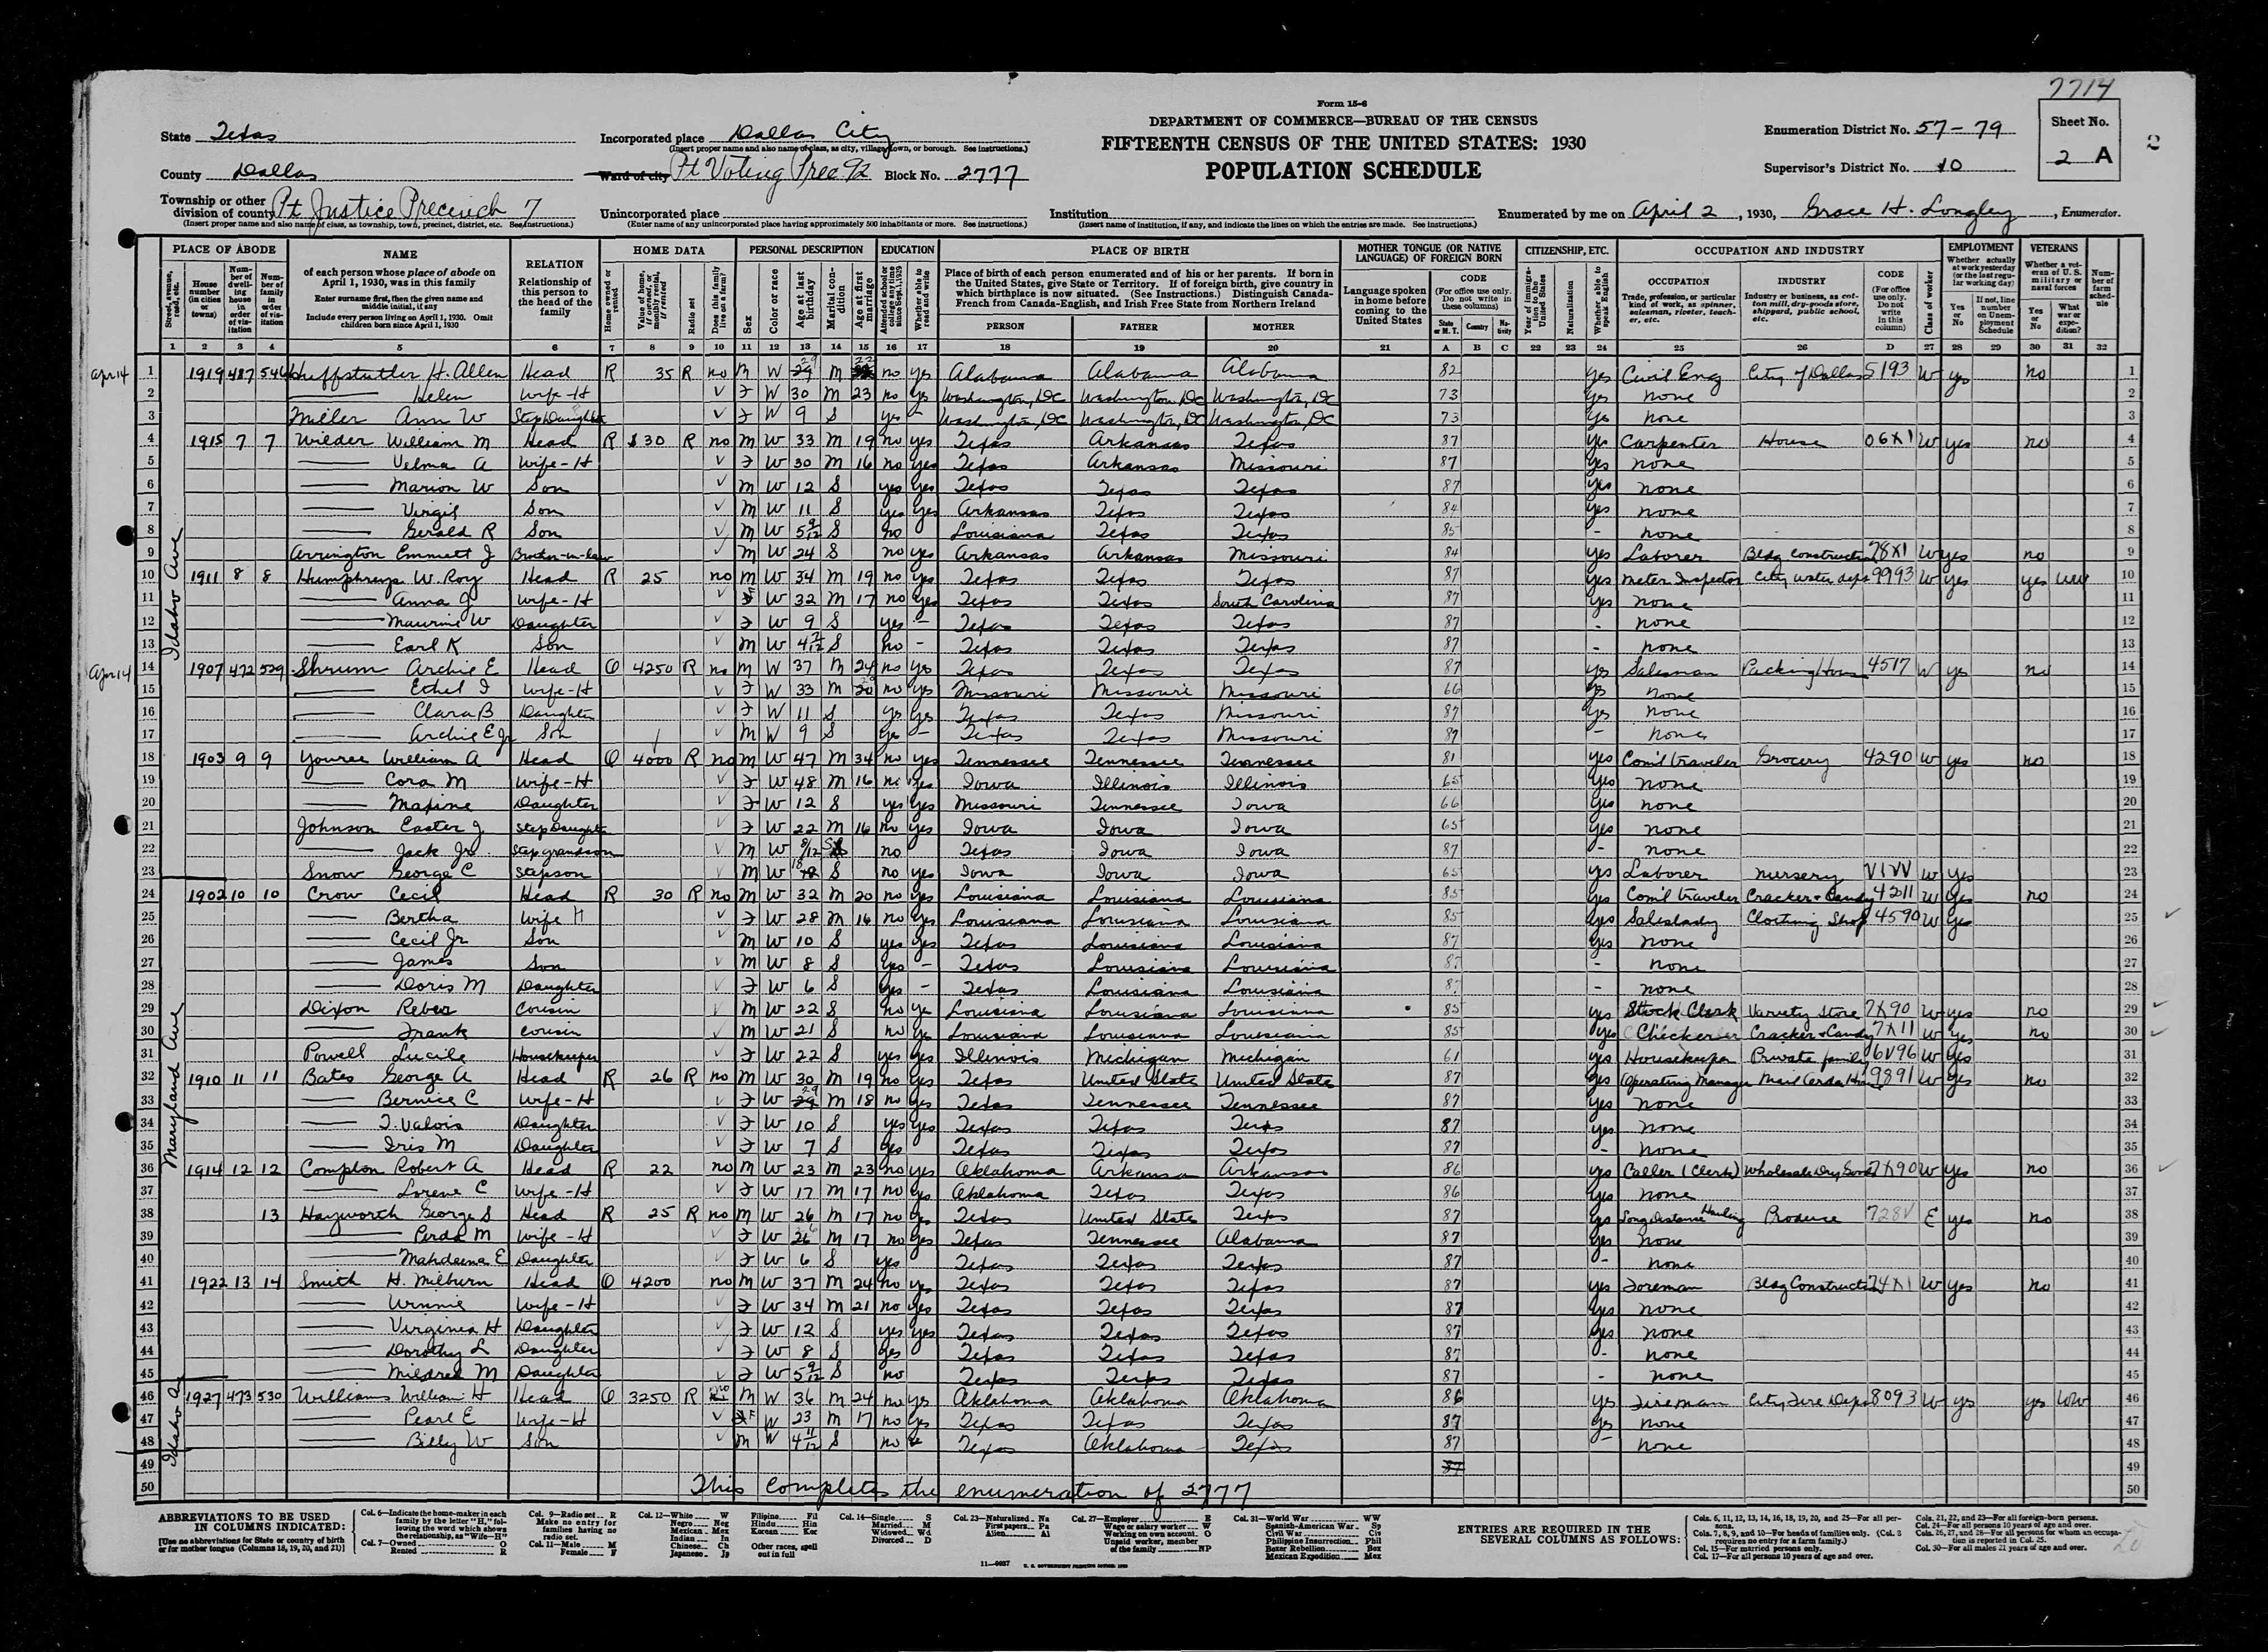 7714
Form 15-6
DEPARTMENT OF COMMERCE—BUREAU OF THE CENSUS
FIFTEENTH CENSUS OF THE UNITED STATES: 1930
POPULATION SCHEDULE
State Texas
County Dallas
Township or other division of county Pt Justice Precinct 7
(Insert proper name and also name of class, as township, town, precinct, district, etc. See instructions.)
Incorporated place Dallas City
(Insert proper name and also name of class, as city, village, town, or borough. See instructions.)
Ward of city Pt Voting Prec 92 Block No. 2777
Unincorporated place
(Enter name of any unincorporated place having approximately 500 inhabitants or more. See instructions.)
Institution
(Insert name of institution, if any, and indicate the lines on which the entries are made. See instructions.)
Enumeration District No. 57-79
Supervisor's District No. 10
Sheet No. 2 A
2
Enumerated by me on April 2, 1930, Grace H. Longley, Enumerator.
PLACE OF ABODE NAME RELATION HOME DATA PERSONAL DESCRIPTION EDUCATION PLACE OF BIRTH MOTHER TONGUE (OR NATIVE LANGUAGE) OF FOREIGN BORN CITIZENSHIP, ETC. OCCUPATION AND INDUSTRY EMPLOYMENT VETERANS
PERSON FATHER MOTHER
1 2 3 4 5 6 7 8 9 10 11 12 13 14 15 16 17 18 19 20 21 A B C 22 23 24 25 26 D 27 28 29 30 31 32
Apr 14 1 1919 487 546 Huffstutler H. Allen Head R 35 R no M W 29 M 22 no yes Alabama Alabama Alabama 82 yes Civil Eng City of Dallas 5193 W yes no 1
2 Helen Wife-H F W 30 M 23 no yes Washington, DC Washington, DC Washington, DC 73 yes none 2
3 Miller Ann W Step Daughter F W 9 S yes - Washington, DC Washington, DC Washington, DC 73 yes none 3
Idaho Ave
4 1915 7 7 Wilder William M Head R $30 R no M W 33 M 19 no yes Texas Arkansas Texas 87 yes Carpenter House 06X1 W yes no 4
5 Velma A Wife-H F W 30 M 16 no yes Texas Arkansas Missouri 87 yes none 5
6 Marion W Son M W 12 S yes yes Texas Texas Texas 87 yes none 6
7 Virgil Son M W 11 S yes yes Arkansas Texas Texas 84 yes none 7
8 Gerald R Son M W 5 9/12 S no Louisiana Texas Texas 85 - none 8
9 Arrington Emmett J Brother-in-law M W 24 S no yes Arkansas Arkansas Missouri 84 yes Laborer Bldg construction 78X1 W yes no 9
10 1911 8 8 Humphreys W. Roy Head R 25 no M W 34 M 19 no yes Texas Texas Texas 87 yes Meter Inspector City water dept 9993 W yes yes WW 10
11 Anna J Wife-H F W 32 M 17 no yes Texas Texas South Carolina 87 yes none 11
12 Maurine W Daughter F W 9 S yes - Texas Texas Texas 87 - none 12
13 Earl K Son M W 4 S no - Texas Texas Texas 87 - none 13
Apr 14 14 1907 472 529 Shrum Archie E Head O 4250 R no M W 37 M 24 no yes Texas Texas Texas 87 yes Salesman Packing House 4517 W yes no 14
15 Ethel I Wife-H F W 33 M 20 no yes Missouri Missouri Missouri 66 yes none 15
16 Clara B Daughter F W 11 S yes yes Texas Texas Missouri 87 yes none 16
17 Archie E Jr Son M W 9 S yes - Texas Texas Missouri 87 - none 17
18 1903 9 9 Youree William A Head O 4000 R no M W 47 M 34 no yes Tennessee Tennessee Tennessee 81 yes Com'l traveler Grocery 4290 W yes no 18
19 Cora M Wife-H F W 48 M 16 no yes Iowa Illinois Illinois 65 yes none 19
20 Maxine Daughter F W 12 S yes yes Missouri Tennessee Iowa 66 yes none 20
21 Johnson Easter J Step Daughter F W 22 M 16 no yes Iowa Iowa Iowa 65 yes none 21
22 Jack Jr. Step grandson M W 8/12 S no Texas Iowa Iowa 87 - none 22
23 Snow George C Stepson M W 18 S no yes Iowa Iowa Iowa 65 yes Laborer Nursery VIVV W yes 23
Maryland Ave
24 1902 10 10 Crow Cecil Head R 30 R no M W 32 M 20 no yes Louisiana Louisiana Louisiana 85 yes Com'l traveler Cracker + Candy 4211 W yes no 24
25 Bertha Wife H F W 28 M 16 no yes Louisiana Louisiana Louisiana 85 yes Saleslady Clothing Shop 4590 W yes 25
26 Cecil Jr Son M W 10 S yes yes Texas Louisiana Louisiana 87 yes none 26
27 James Son M W 8 S yes - Texas Louisiana Louisiana 87 - none 27
28 Doris M Daughter F W 6 S yes - Texas Louisiana Louisiana 87 - none 28
29 Dixon Reber Cousin M W 22 S no yes Louisiana Louisiana Louisiana 85 yes Stock Clerk Variety Store 7X90 W yes no 29
30 Frank Cousin M W 21 S no yes Louisiana Louisiana Louisiana 85 yes Checker Cracker + Candy 7X11 W yes no 30
31 Powell Lucile Housekeeper F W 22 S yes yes Illinois Michigan Michigan 61 yes Housekeeper Private family 6V96 W yes 31
32 1910 11 11 Bates George A Head R 26 R no M W 30 M 19 no yes Texas United State United State 87 yes Operating Manager Mail Order House 9891 W yes no 32
33 Bernice C Wife-H F W 29 M 18 no yes Texas Tennessee Tennessee 87 yes none 33
34 T. Valois Daughter F W 10 S yes yes Texas Texas Texas 87 yes none 34
35 Iris M Daughter F W 7 S yes Texas Texas Texas 87 - none 35
36 1914 12 12 Compton Robert A Head R 22 no M W 23 M 23 no yes Oklahoma Arkansas Arkansas 86 yes Caller (Clerk) Wholesale Dry Goods 7X90 W yes no 36
37 Lorene C Wife-H F W 17 M 17 no yes Oklahoma Texas Texas 86 yes none 37
38 13 Hayworth George S Head R 25 R no M W 26 M 17 no yes Texas United State Texas 87 yes Long Distance Hauling Produce 728V E yes no 38
39 M Wife-H F W 26 M 17 no yes Texas Tennessee Alabama 87 yes none 39
40 Mahdeena E Daughter F W 6 S yes Texas Texas Texas 87 - none 40
41 1922 13 14 Smith H. Milburn Head O 4200 no M W 37 M 24 no yes Texas Texas Texas 87 yes Foreman Bldg Construction 74X1 W yes no 41
42 Winnie Wife-H F W 34 M 21 no yes Texas Texas Texas 87 yes none 42
43 Virginia H Daughter F W 12 S yes yes Texas Texas Texas 87 yes none 43
44 Dorothy L Daughter F W 8 S yes Texas Texas Texas 87 - none 44
45 Mildred M Daughter F W 5 9/12 S no Texas Texas Texas 87 - none 45
Idaho Av
46 1927 473 530 Williams William H Head O 3250 R no M W 36 M 24 no yes Oklahoma Oklahoma Oklahoma 86 yes Fireman City Fire Dept 8093 W yes yes WW 46
47 Pearl E Wife-H F W 23 M 17 no yes Texas Texas Texas 87 yes none 47
48 Billy W Son M W 4 11/12 S no Texas Oklahoma Texas 87 - none 48
49 87 49
50 This completes the enumeration of 2777 50
ABBREVIATIONS TO BE USED IN COLUMNS INDICATED:
[Use no abbreviations for State or country of birth or for mother tongue (Columns 18, 19, 20, and 21)]
Col. 6—Indicate the home-maker in each family by the letter "H," following the word which shows the relationship, as "Wife—H"
Col. 7—Owned O Rented R
Col. 9—Radio set R Make no entry for families having no radio set.
Col. 11—Male M Female F
Col. 12—White W Negro Neg Mexican Mex Indian In Chinese Ch Japanese Jp Filipino Fil Hindu Hin Korean Kor Other races, spell out in full
Col. 14—Single S Married M Widowed Wd Divorced D
Col. 23—Naturalized Na First papers Pa Alien Al
Col. 27—Employer E Wage or salary worker W Working on own account O Unpaid worker, member of the family NP
Col. 31—World War WW Spanish-American War Sp Civil War Civ Philippine Insurrection Phil Boxer Rebellion Box Mexican Expedition Mex
ENTRIES ARE REQUIRED IN THE SEVERAL COLUMNS AS FOLLOWS:
Cols. 6, 11, 12, 13, 14, 16, 18, 19, 20, and 25—For all persons.
Cols. 7, 8, 9, and 10—For heads of families only. (Col. 8 requires no entry for a farm family.)
Col. 15—For married persons only.
Col. 17—For all persons 10 years of age and over.
Cols. 21, 22, and 23—For all foreign-born persons.
Col. 24—For all persons 10 years of age and over.
Cols. 26, 27, and 28—For all persons for whom an occupation is reported in Col. 25.
Col. 30—For all males 21 years of age and over.